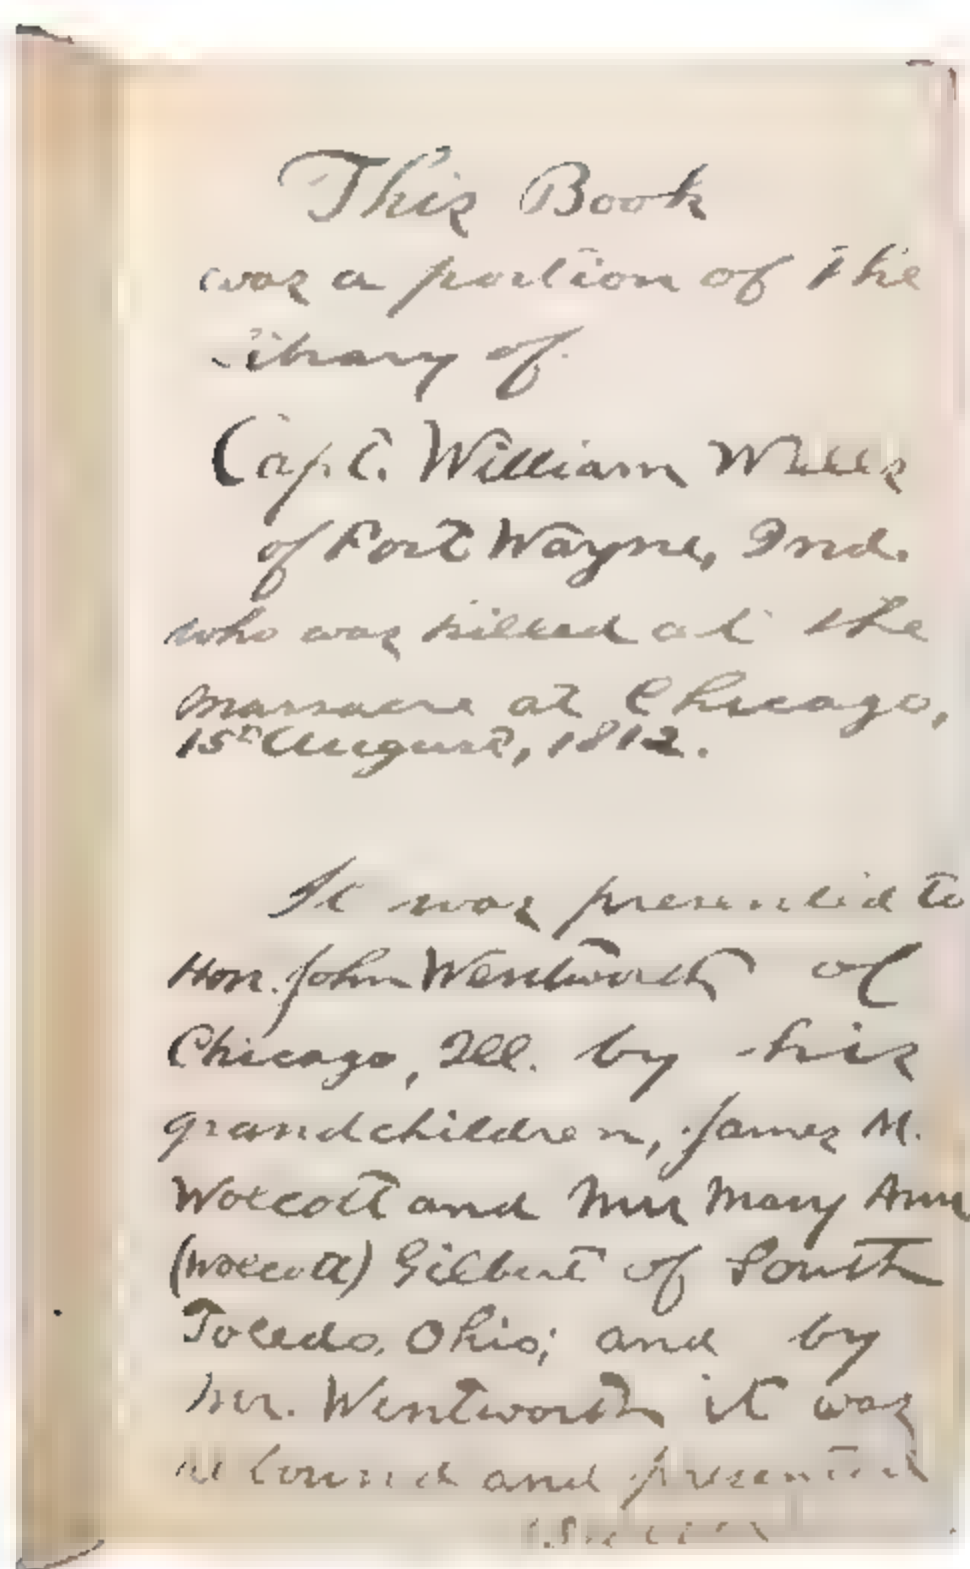 This Book
was a portion of the
Library of
Capt. William Wells
of Fort Wayne, Ind.
who was killed at the
massacre at Chicago,
15th August, 1812.
It was presented to
Hon. John Wentworth of
Chicago, Ill. by his
grandchildren, James M.
Wolcott and Mrs Mary Ann
(Wolcott) Gilbert of South
Toledo, Ohio; and by
Mr. Wentworth it was
rebound and presented